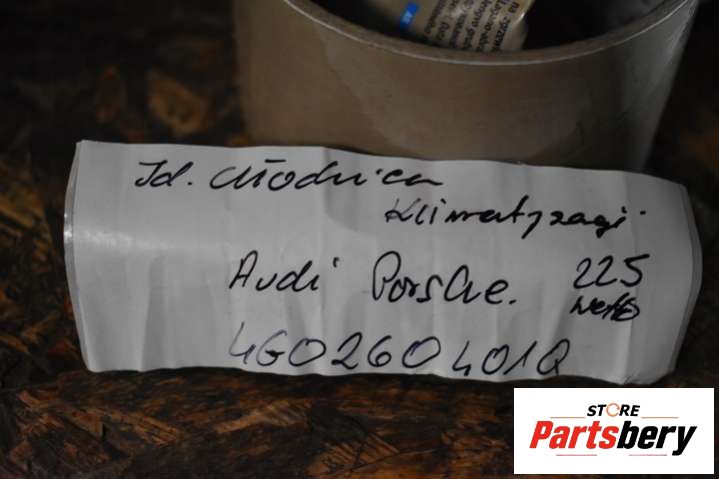 Jd. chłodnica
Klimatyzacji
Audi Porsche. 225
netto
4G0260401Q
STORE
Partsbery